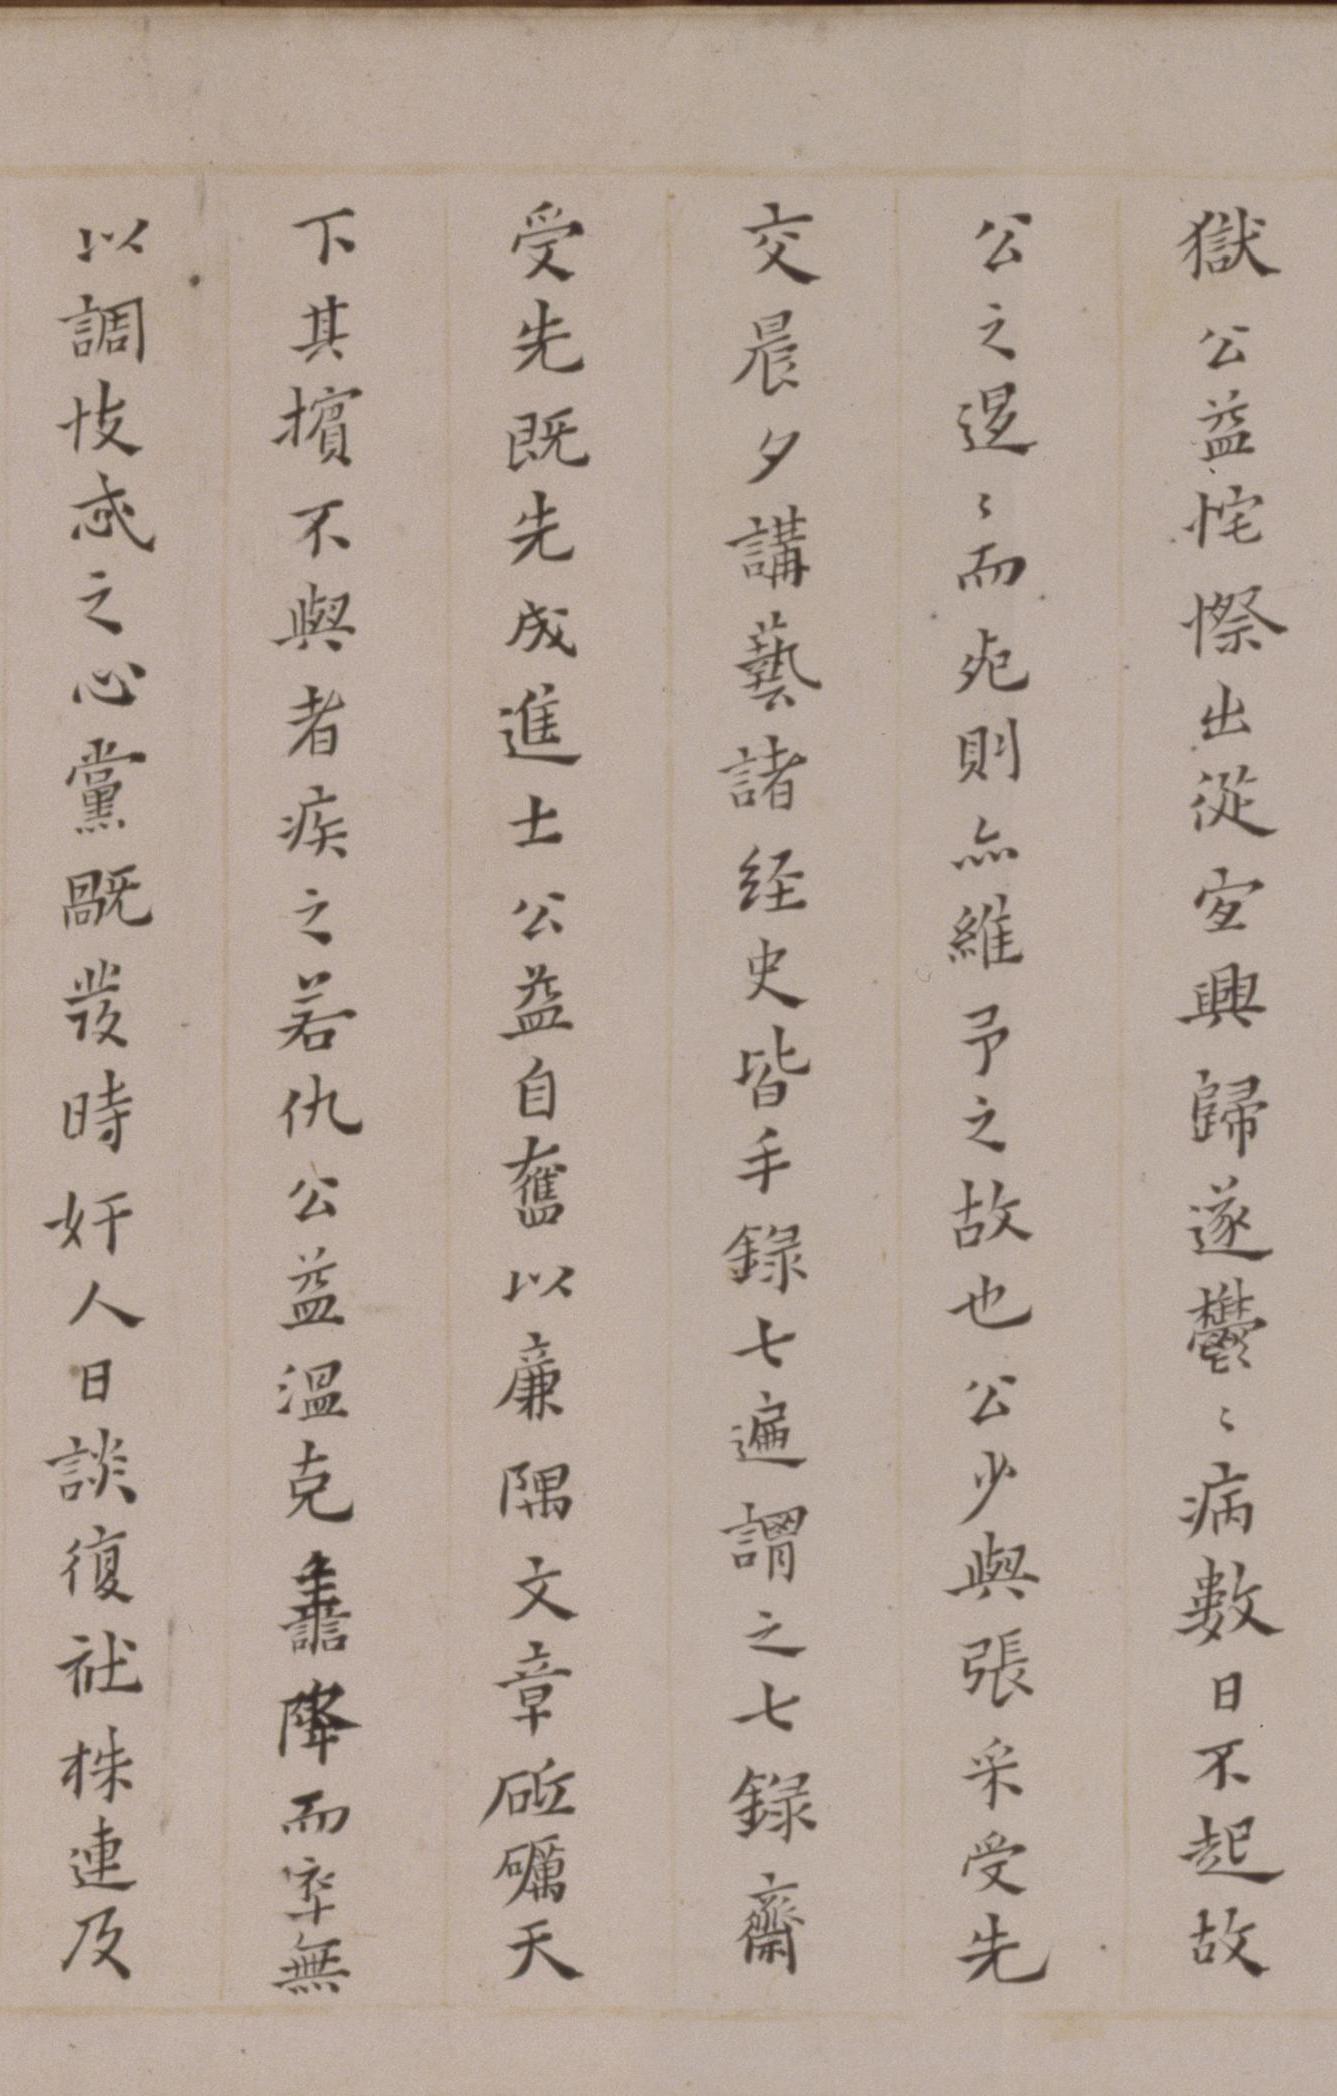 獄公益侘傺出從宜興歸遂鬱〻病數日不起故
公之遑〻而死則亦維予之故也公少與張采受先
交晨夕講藝諸经史皆手錄七遍謂之七錄齋
受先既先成進士公益自奮以廉隅文章砥礪天
下其擯不與者疾之若仇公益溫克譱降而率無
以調忮忒之心黨既發時奸人日談復社株連及